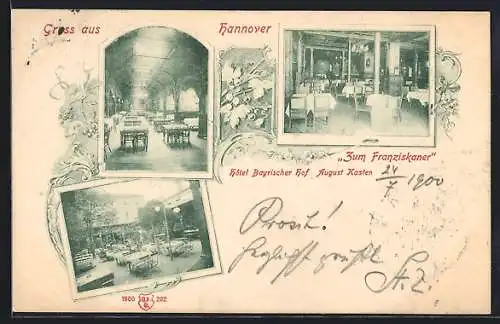 Gruss aus Hannover
„Zum Franziskaner"
Hôtel Bayrischer Hof August Kasten
24/7 1900
Prosit!
Herzlichst grüßt
A. Z.
1900 202